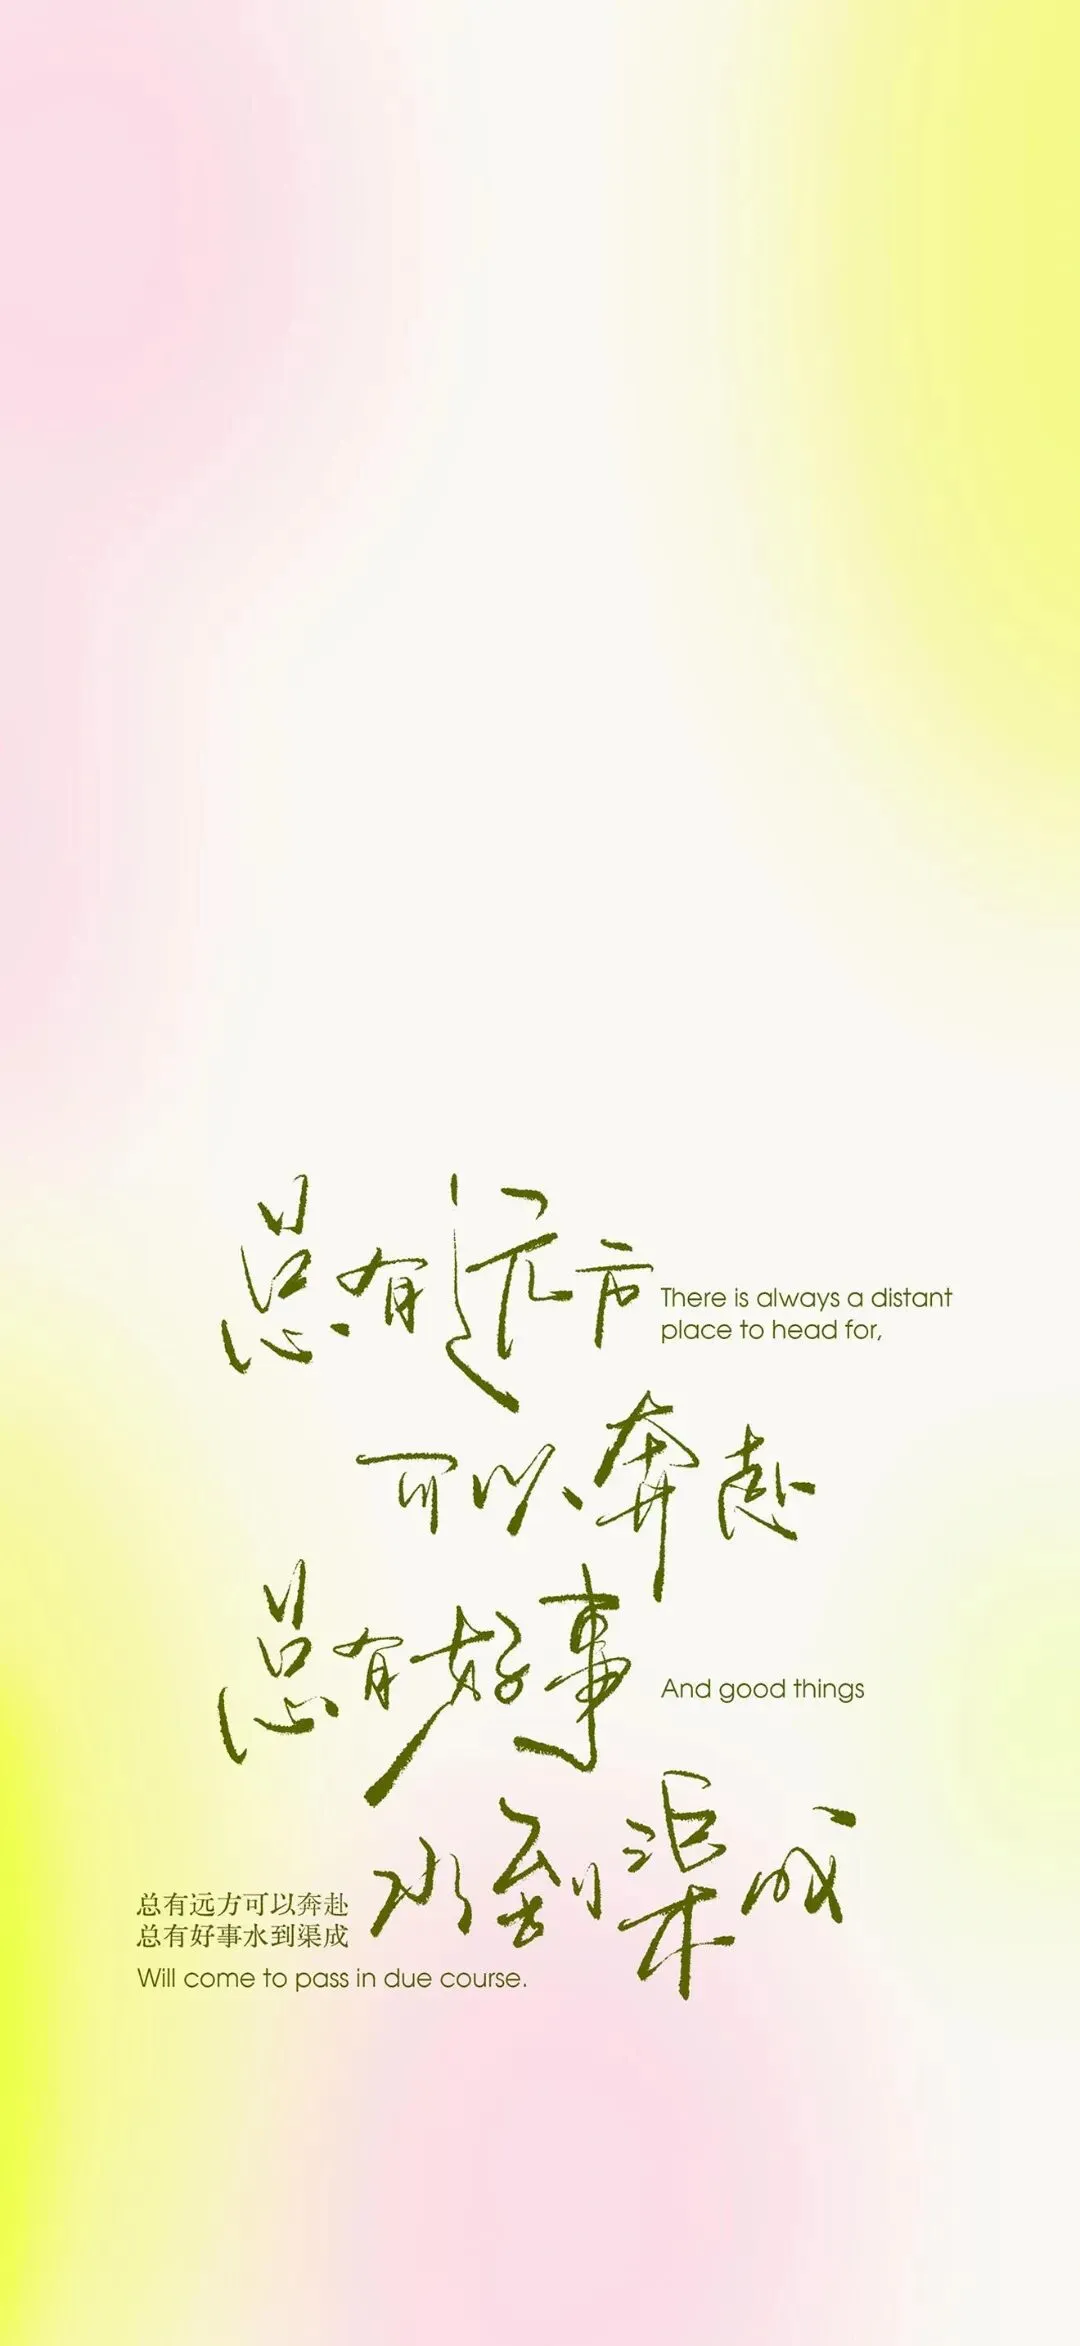 总有远方
There is always a distant
place to head for,
可以奔赴
总有好事
And good things
水到渠成
总有远方可以奔赴
总有好事水到渠成
Will come to pass in due course.